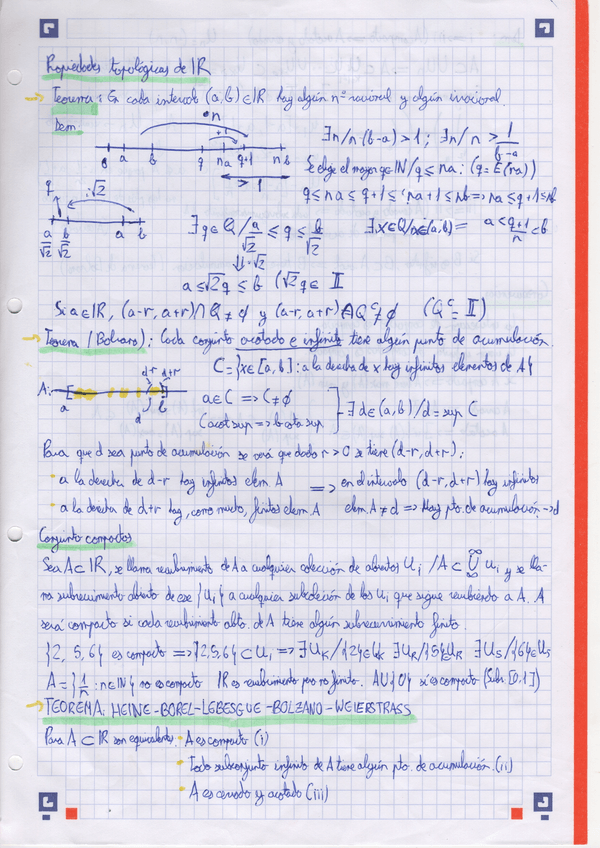 Propiedades topológicas de IR
→ Teorema: En cada intervalo (a,b) ∈ IR hay algún nº racional y algún irracional.
Dem.
•n
0 a b q na q+1 nb
> 1
∃n/n·(b-a) > 1; ∃n/n > 1/(b-a)
Se elige el mayor q ∈ IN / q ≤ na; (q = E(na))
q ≤ na ≤ q+1 ≤ na+1 ≤ nb => na ≤ q+1 ≤ nb
q :√2
a/√2 b/√2 a b
∃q ∈ Q / a/√2 ≤ q ≤ b/√2 ∃x ∈ Q/x∈(a,b) = a < (q+1)/n < b
↓·√2
a ≤ √2q ≤ b (√2q ∈ II
Si a ∈ IR, (a-r, a+r) ∩ Q ≠ ∅ y (a-r, a+r) ∩ Qᶜ ≠ ∅ (Qᶜ = II)
→ Teorema (Bolzano): Cada conjunto acotado e infinito tiene algún punto de acumulación.
C = {x ∈ [a,b] : a la derecha de x hay infinitos elementos de A}
A: a d-r d d+r b
a ∈ C => C ≠ ∅
(acot sup => b cota sup
∃ d ∈ (a,b) / d = sup C
Para que d sea punto de acumulación se verá que dado r > 0 se tiene (d-r, d+r):
• a la derecha de d-r hay infinitos elem. A => en el intervalo (d-r, d+r) hay infinitos
• a la derecha de d+r hay, como mucho, finitos elem. A elem. A ≠ d => Hay pto. de acumulación → d
Conjunto compactos
Sea A ⊂ IR, se llama recubrimiento de A a cualquier colección de abiertos Uᵢ / A ⊂ ∪ Uᵢ y se lla-
ma subrecubrimiento abierto de ese {Uᵢ} a cualquier subcolección de los Uᵢ que sigue recubriendo a A. A
será compacto si cada recubrimiento abto. de A tiene algún subrecubrimiento finito.
{2, 5, 6} es compacto => {2,5,6} ⊂ Uᵢ => ∃ U_K / {2} ∈ U_K ∃ U_R / {5} ∈ U_R ∃ U_S / {6} ∈ U_S
A = {1/n : n ∈ IN} no es compacto IR es recubrimiento pero no finito. A ∪ {0} sí es compacto (Subs. [0,1])
→ TEOREMA: HEINE-BOREL-LEBESGUE-BOLZANO-WEIERSTRASS
Para A ⊂ IR son equivalentes: • A es compacto (i)
• Todo subconjunto infinito de A tiene algún pto. de acumulación. (ii)
• A es cerrado y acotado (iii)